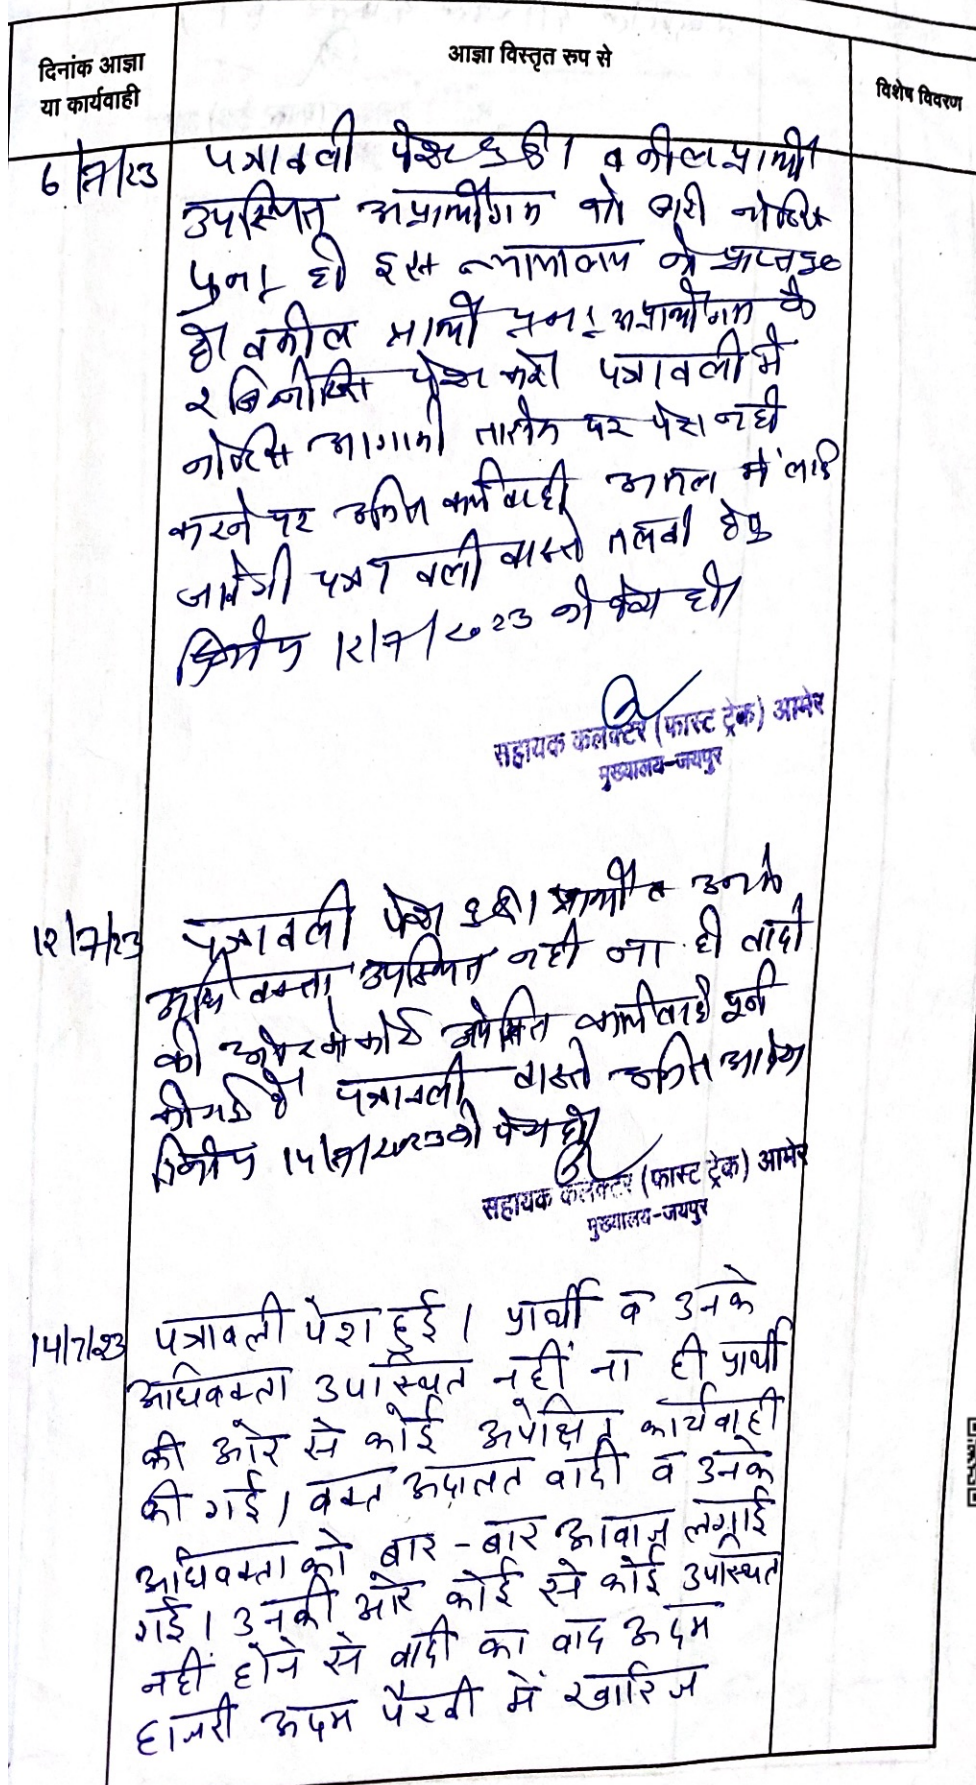 दिनांक आज्ञा
या कार्यवाही
आज्ञा विस्तृत रूप से
विशेष विवरण
6/7/23
पत्रावली पेश हुई। वकील प्रार्थी
उपस्थित अप्रार्थीगण को जारी नोटिस
पुनः ही इस न्यायालय को प्राप्त हुए
है। वकील प्रार्थी पुनः अप्रार्थीगण के
पेश करे। पत्रावली में
नोटिस आगामी तारीख पर पेश नही
करने पर उचित कार्यवाही अमल में लाई
जावेगी पत्रावली वास्ते तलबी हेतु
दिनांक 12/7/2023 को पेश हो।
सहायक कलेक्टर (फास्ट ट्रेक) आमेर
मुख्यालय-जयपुर
12/7/23
पत्रावली पेश हुई। प्रार्थी व उनके
अधिवक्ता उपस्थित नही ना ही वादी
की ओर से कोई अपेक्षित कार्यवाही पूर्ण
की गई है पत्रावली वास्ते उचित आदेश
दिनांक 14/7/2023 को पेश हो।
सहायक कलेक्टर (फास्ट ट्रेक) आमेर
मुख्यालय-जयपुर
14/7/23
पत्रावली पेश हुई। प्रार्थी व उनके
अधिवक्ता उपस्थित नहीं ना ही प्रार्थी
की ओर से कोई अपेक्षित कार्यवाही
की गई। वक्त अदालत वादी व उनके
अधिवक्ता को बार-बार आवाज लगाई
गई। उनकी ओर कोई से कोई उपस्थित
नहीं होने से वादी का वाद अदम
हाजरी अदम पैरवी में खारिज